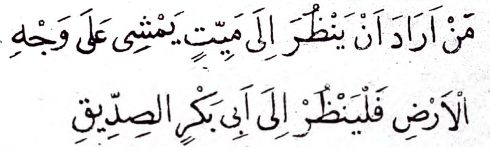 مَنْ اَرَادَ اَنْ يَنْظُرَ اِلَى مَيِّتٍ يَمْشِى عَلَى وَجْهِ
الْاَرْضِ فَلْيَنْظُرْ اِلَى اَبِى بَكْرٍ الصِدِّيقِ